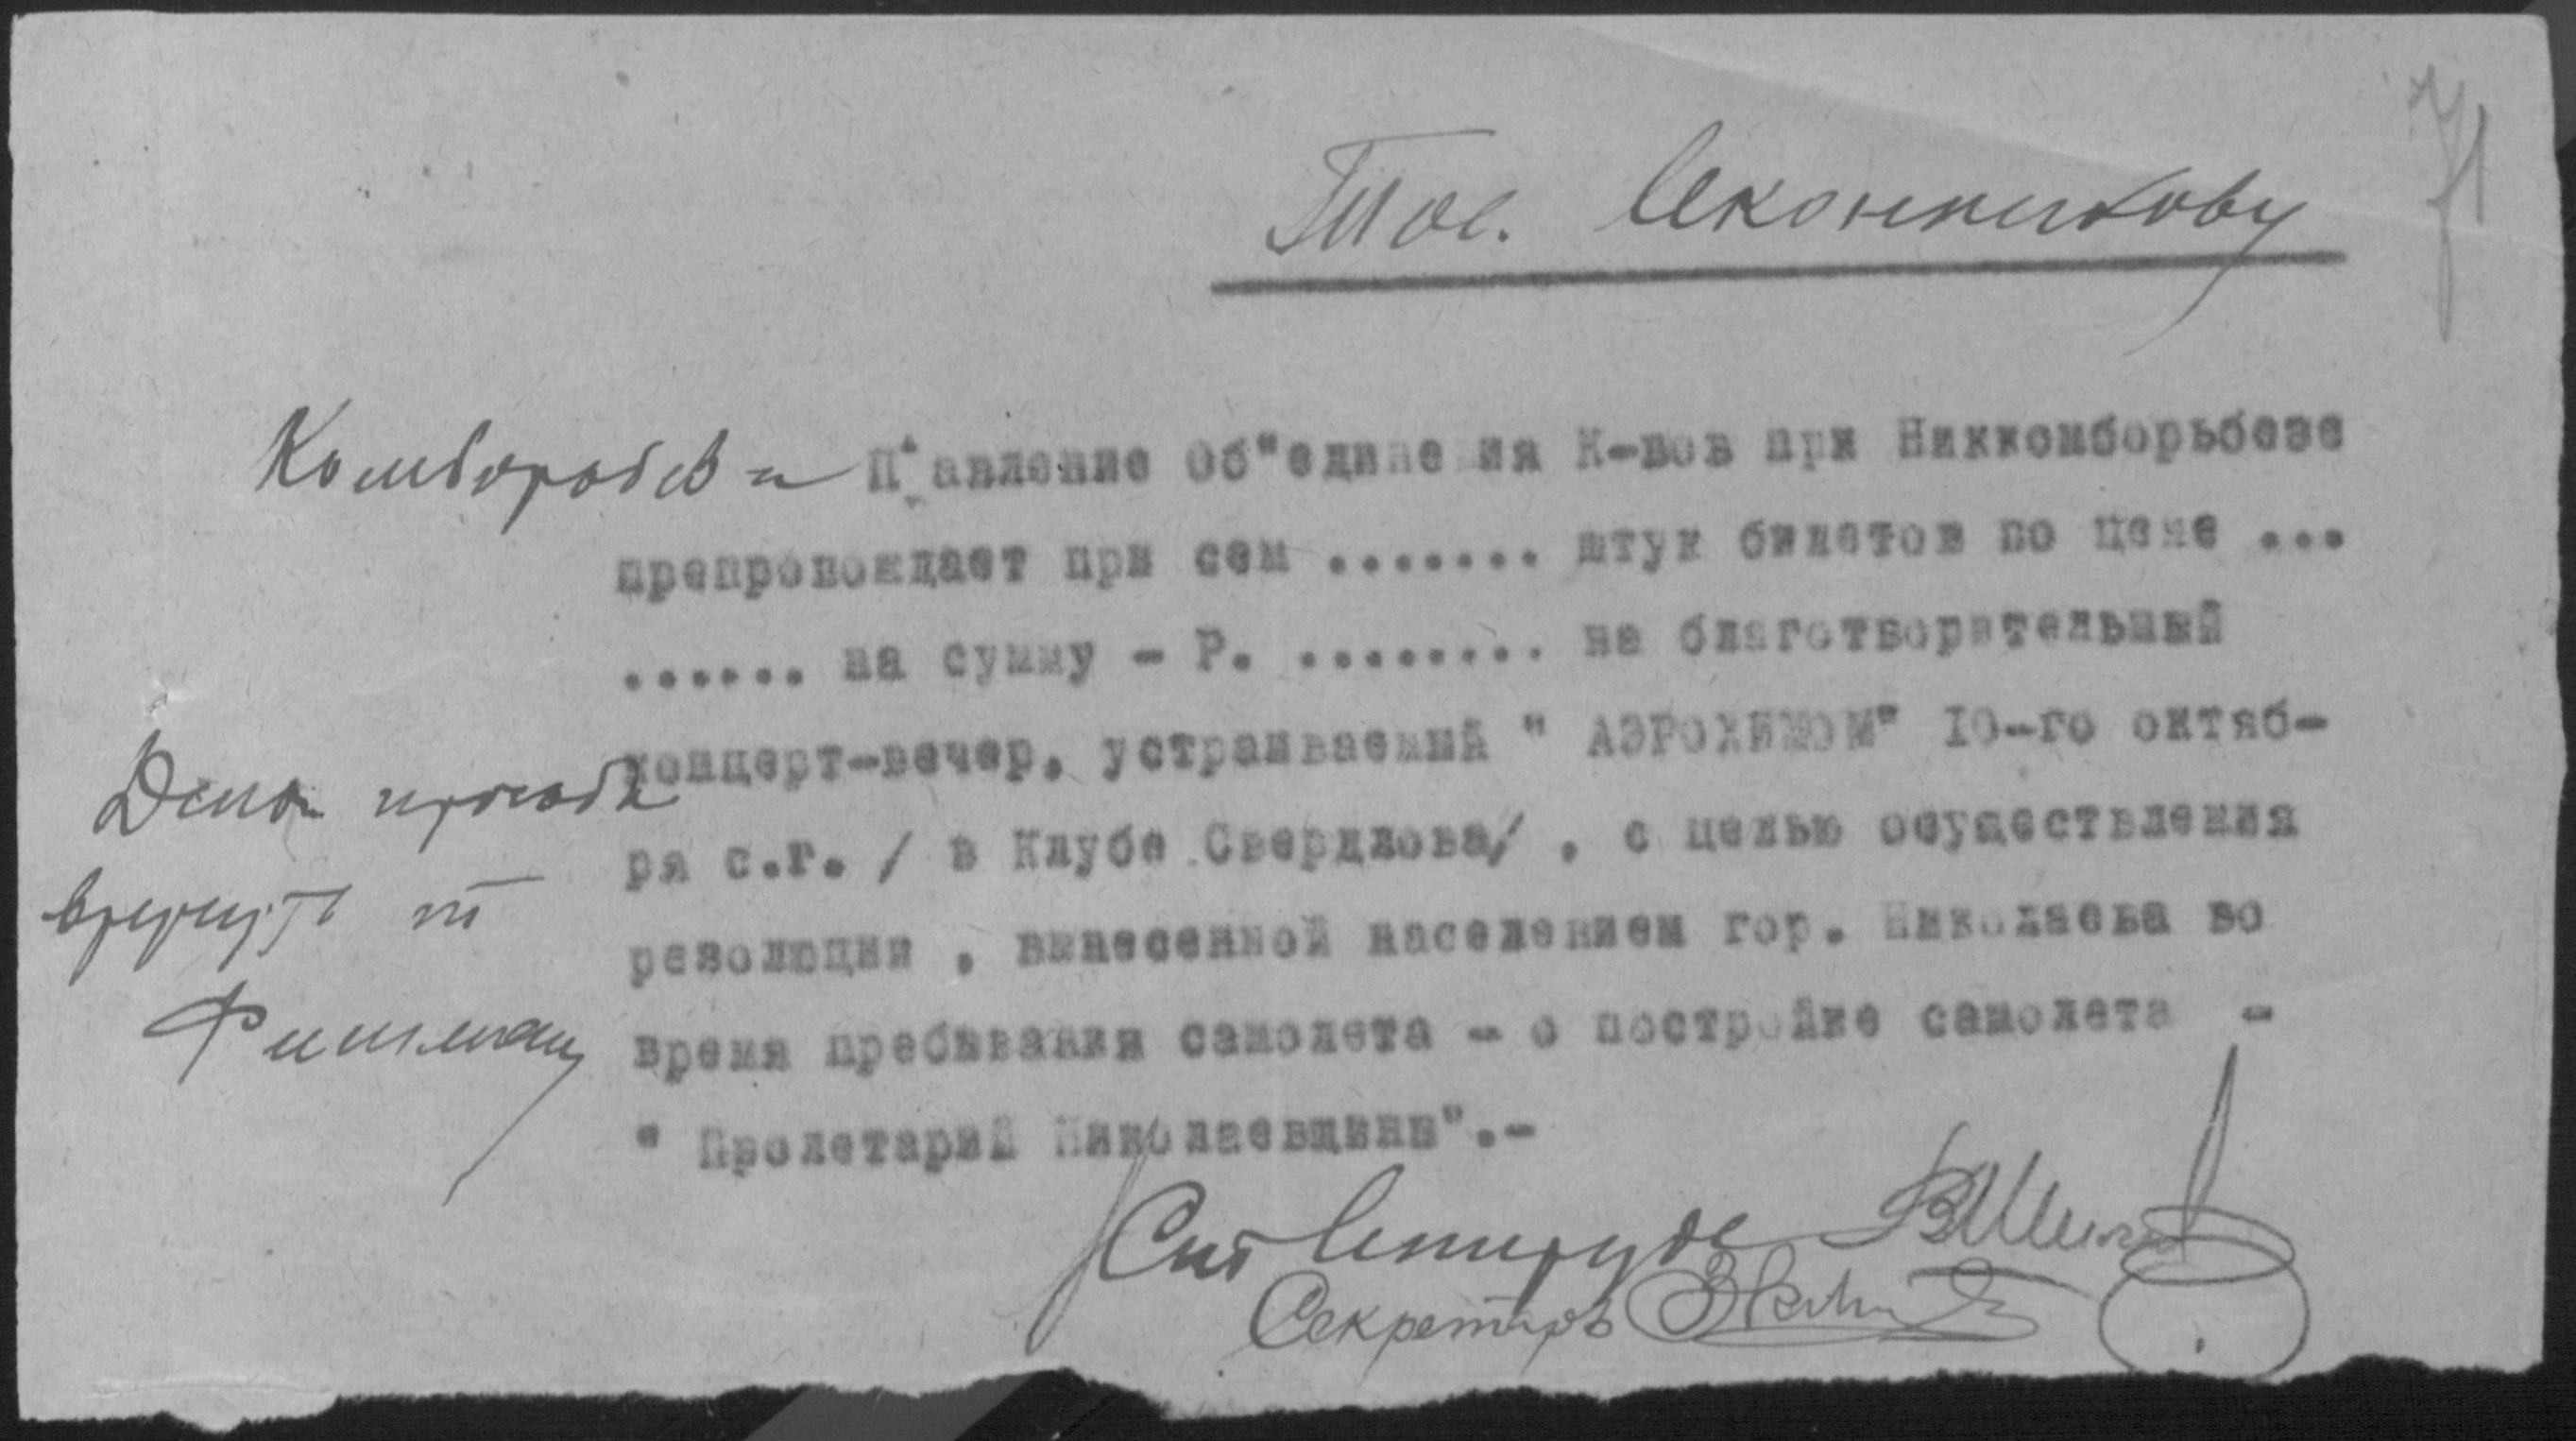 71
Тов. Иконникову
Комборобез - П авление Об"едине ия К-вов при Никкомборьбезе
препровождает при сем ....... штук билетов по цене ...
...... на сумму - Р. ........ на благотворительный
концерт-вечер, устраиваемый " АЭРОХИМОМ" 10-го октяб-
ря с.г. / в Клубе Свердлова/ , с целью осуществления
Деньги просьба
резолюции , вынесенной населением гор. Николаева во
вручить т
время пребывания самолета - о постройке самолета -
Фишману
" Пролетарий Николаевщины".-
Секретарь